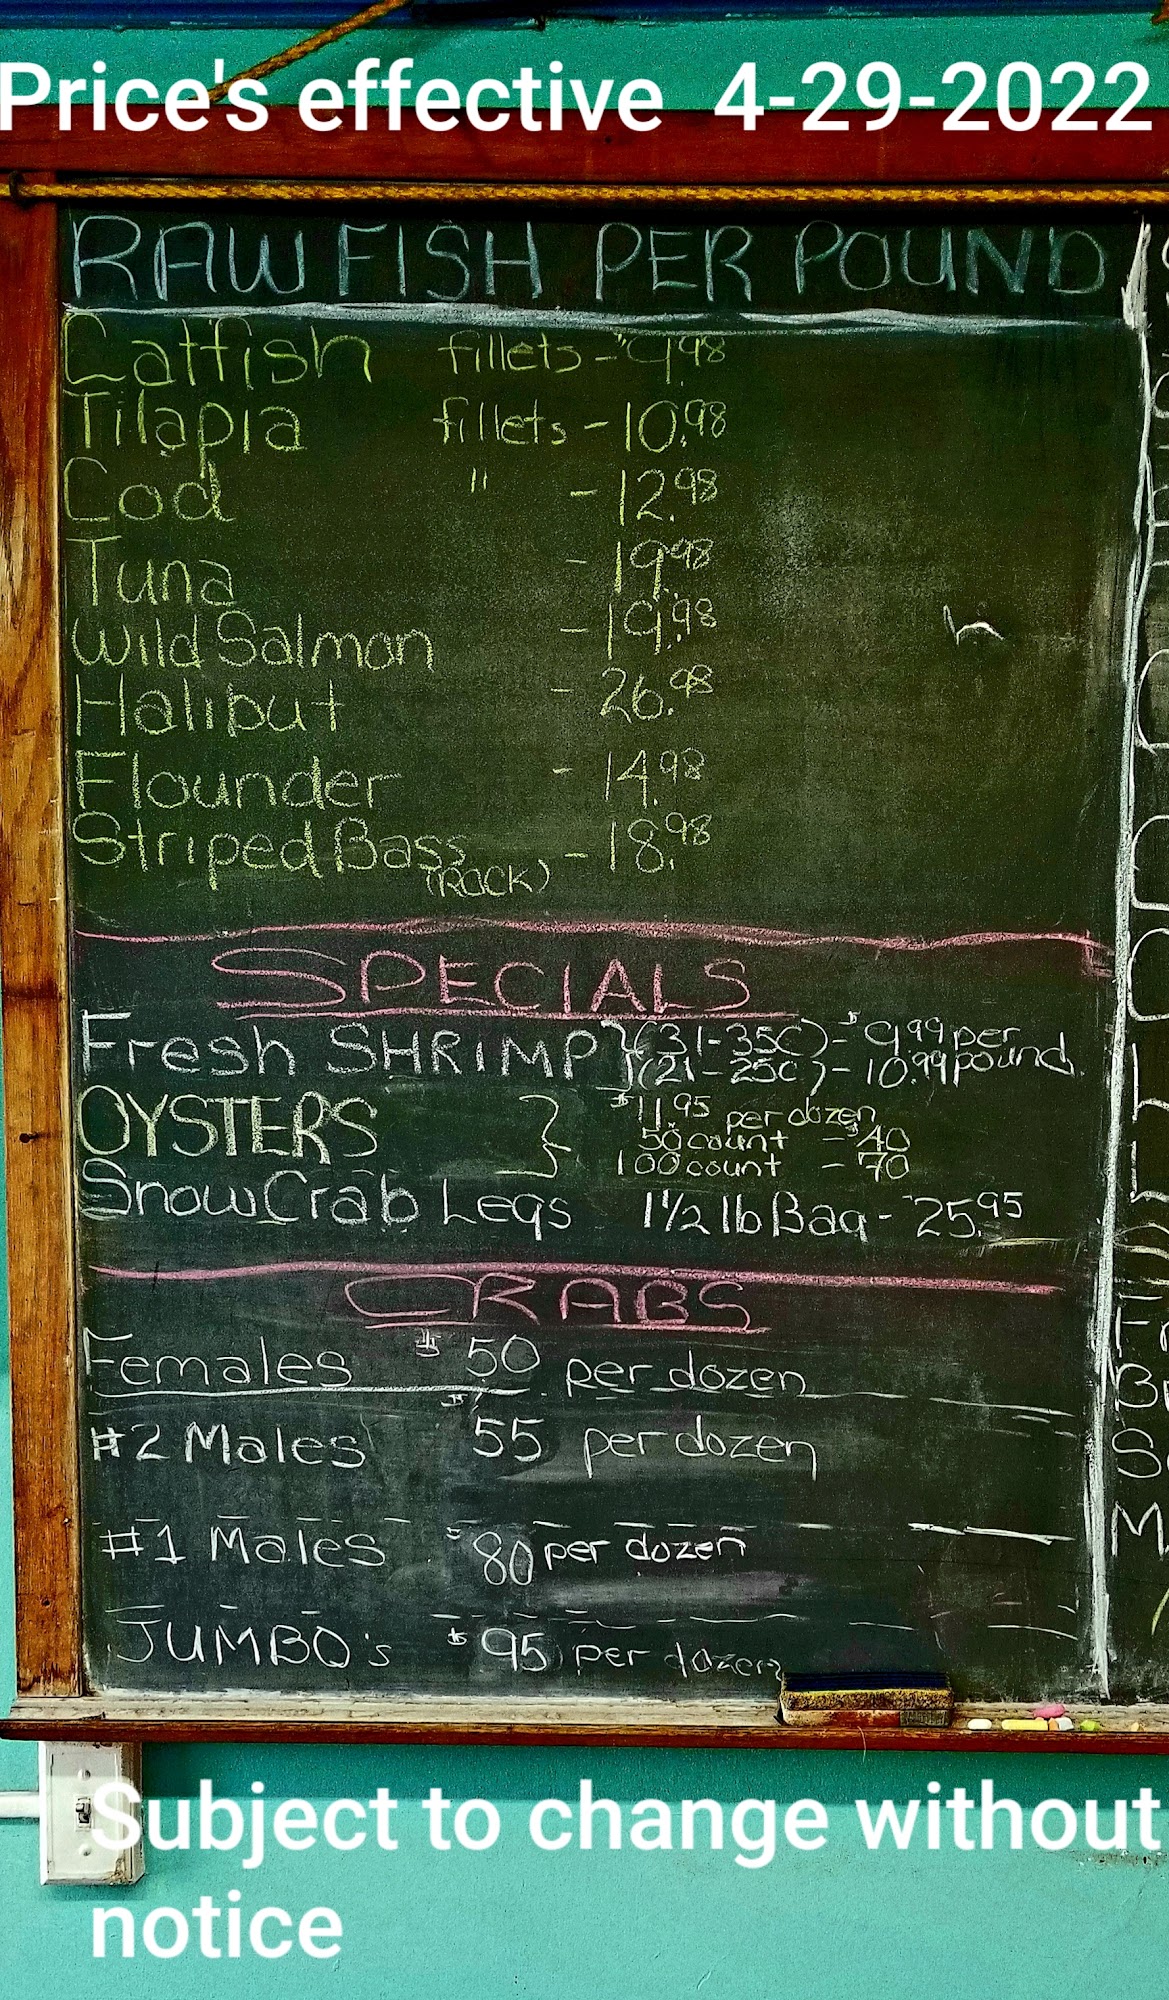 Price's effective 4-29-2022
RAW FISH PER POUND
Catfish fillets - $9.98
Tilapia fillets - 10.98
Cod " - 12.98
Tuna - 19.98
Wild Salmon - 19.98
Halibut - 26.98
Flounder - 14.98
Striped Bass - 18.98
(ROCK)
SPECIALS
Fresh SHRIMP } (31-35C) - $9.99 per
(21-25C) - 10.99 pound
OYSTERS } $11.95 per dozen
50 count - $40
100 count - 70
Snow Crab Legs 1 1/2 lb Bag - 25.95
CRABS
Females $50 per dozen
#2 Males $55 per dozen
#1 Males $80 per dozen
JUMBO's $95 per dozen
Subject to change without
notice